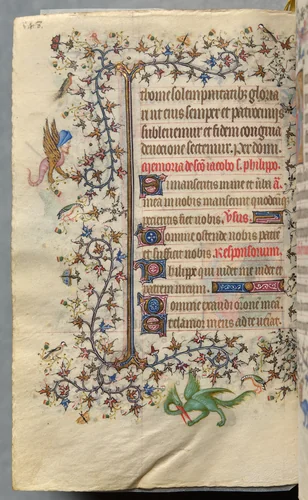 ut eius semper et patrociniis
sublevemur et fidem congrua
devocione sectemur. Per domi
Memoria de sco iacobo s. philippo.
Si manseritis in me et verba
mea in vobis manserint quodcu
petieritis fiet vobis. Vsus.
Domine ostende nobis patre
et sufficit nobis. Responsorium.
Philippe qui videt me videt et
patrem meum.
Domine exaudi orone mea
Et clamor meus ad te veniat